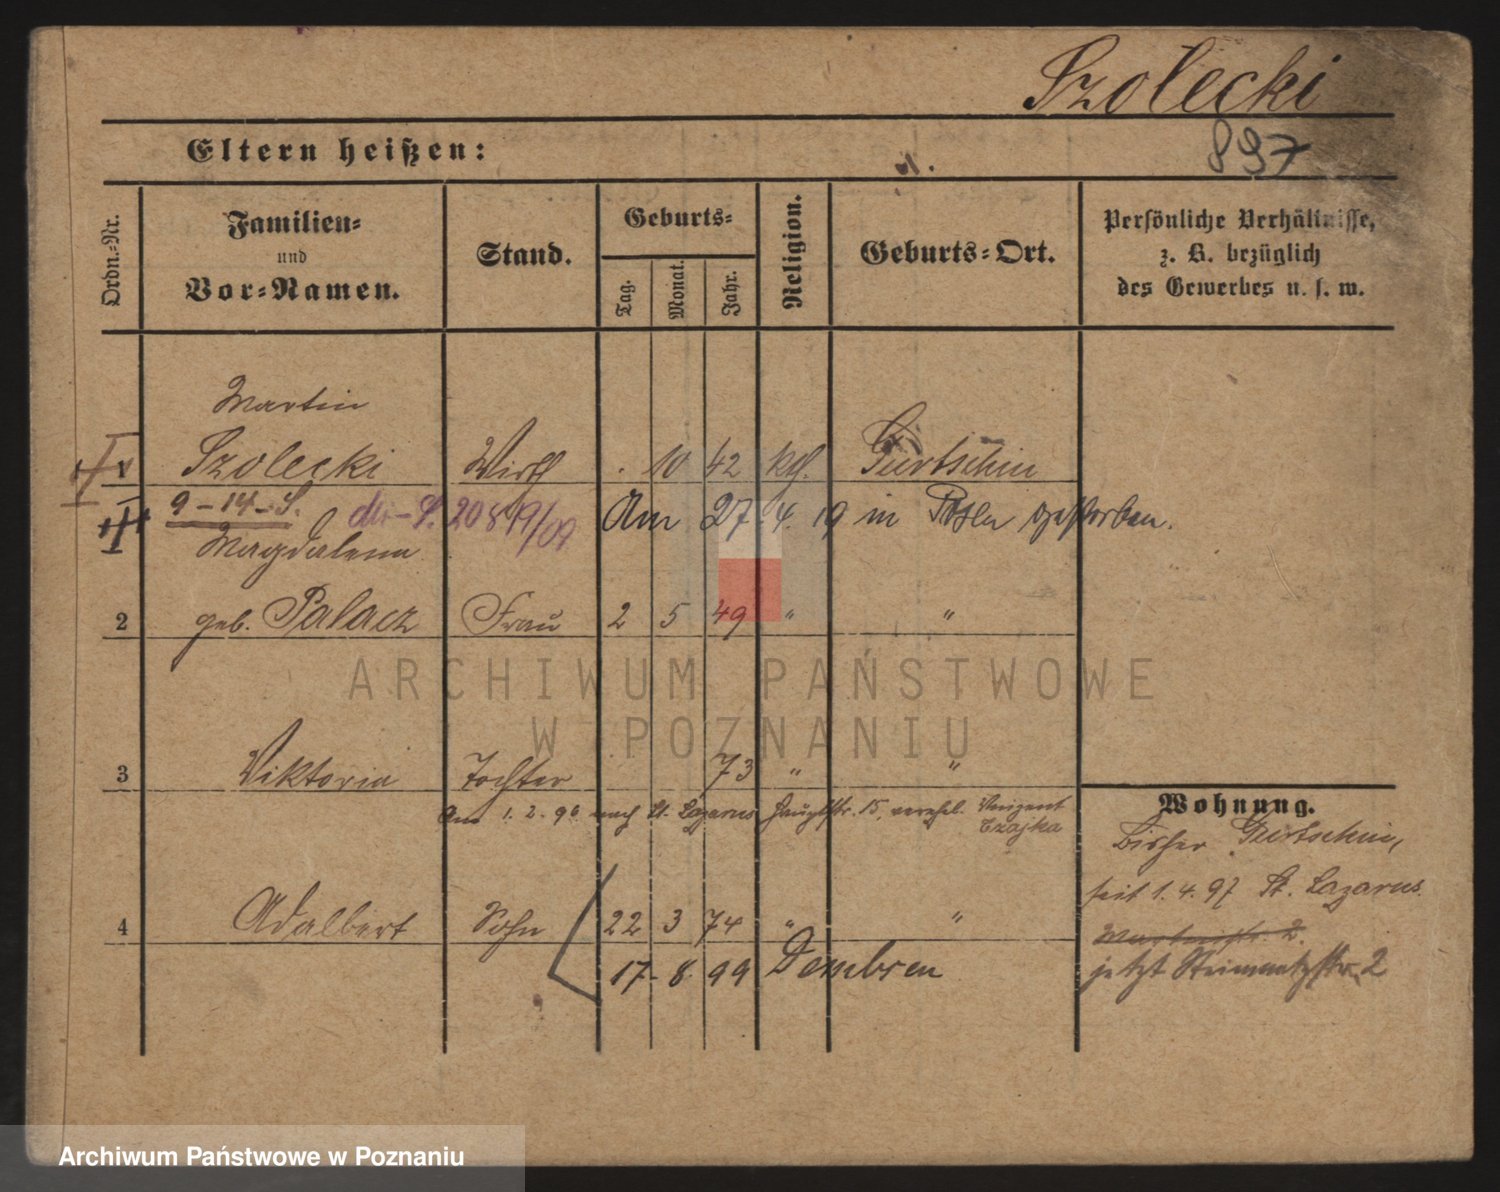 Szołecki
897
Eltern heißen:
Ordn.-Nr.
Familien-
und
Vor-Namen.
Stand.
Geburts-
Tag.
Monat.
Jahr.
Religion.
Geburts-Ort.
Persönliche Verhältnisse,
z. B. bezüglich
des Gewerbes u. s. w.
Martin
1 Szolecki Wirth . 10 42 kth. Gurtschin
9-14-S.
20849/09
Am 27. 4. 19 in Posen gestorben.
Magdalena
2 geb. Palacz Frau 2 5 49 " "
3 Viktoria Tochter 73 " "
Am 1. 2. 96 nach St. Lazarus Hauptstr. 15, verehel. Vinzent
Czajka
4 Adalbert Sohn 22 3 74 " "
17. 8. 99 Dembsen
Wohnung.
bisher Gurtschin,
seit 1. 4. 97 St. Lazarus
2.
jetzt Steinmetzstr. 2
ARCHIWUM PAŃSTWOWE
W POZNANIU
Archiwum Państwowe w Poznaniu